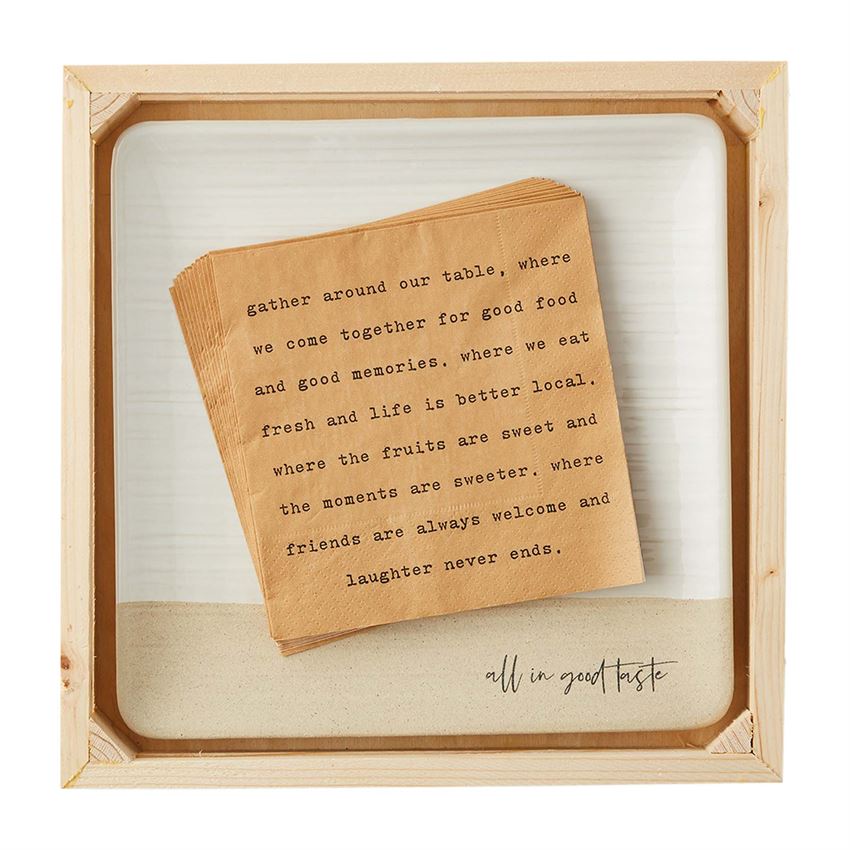 gather around our table, where
we come together for good food
and good memories. where we eat
fresh and life is better local.
where the fruits are sweet and
the moments are sweeter. where
friends are always welcome and
laughter never ends.
all in good taste